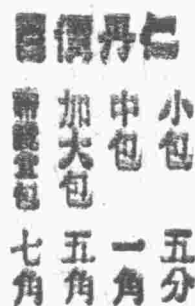 仁丹價目
小包 五分
中包 一角
加大包 五角
包 七角